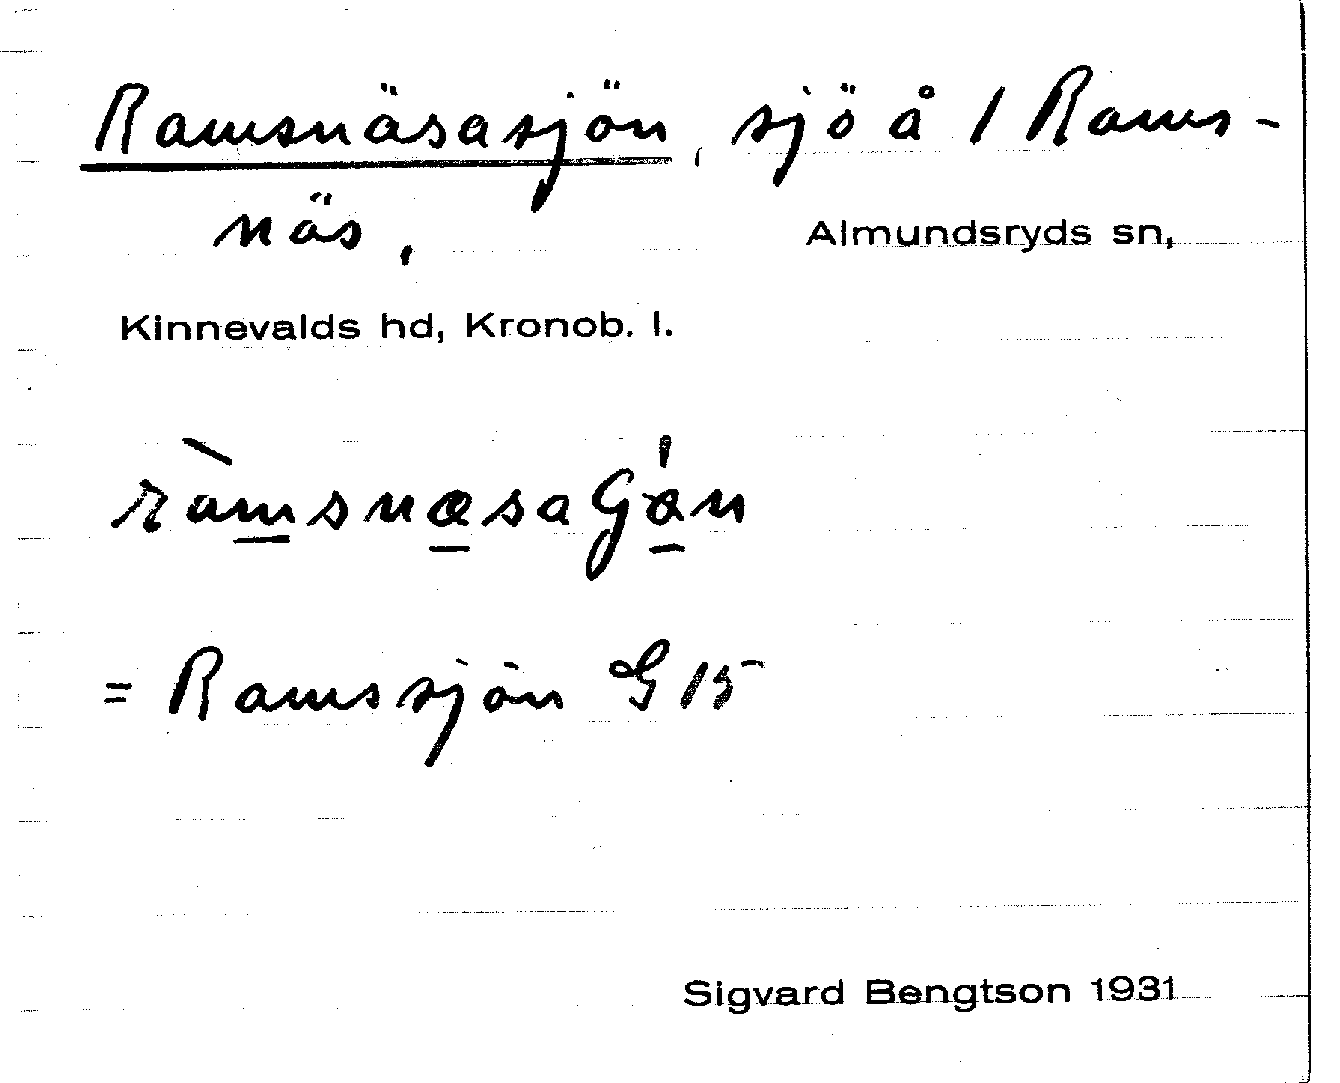 Ramsnäsasjön, sjö å 1 Rams-
näs,
Almundsryds sn,
Kinnevalds hd, Kronob. l.
= Ramssjön G 15
Sigvard Bengtson 1931